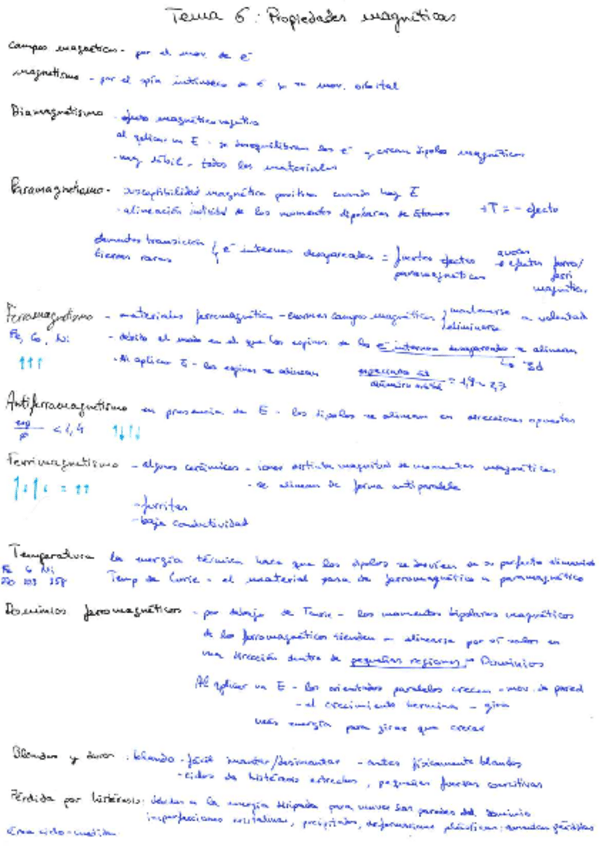 Tema 6: Propiedades magnéticas
campos magnéticos - por el mov. de e-
magnetismo - por el spin intrínseco de e- y su mov. orbital
Diamagnetismo - efecto magnético negativo
al aplicar un E - se desequilibran los e- y crean dipolos magnéticos
- muy débil, todos los materiales
Paramagnetismo - susceptibilidad magnética positiva cuando hay E
- alineación individ de los momentos dipolares de átomos +T = - efecto
elementos transición y e- internos desapareados = fuertes efectos
tierras raras paramagnéticos
a efectos ferro/
ferri
magnético
Ferromagnetismo - materiales ferromagnéticos - enormes campos magnéticos mantenerse a voluntad
eliminarse
Fe, Co, Ni - debido al modo en el que los espines de los e- internos desapareados se alinean
↑↑↑ 3d
- Al aplicar E - los espines se alinean
Antiferromagnetismo en presencia de E - los dipolos se alinean en direcciones opuestas
< 1,4 ↑↓↑↓
Ferrimagnetismo - algunos cerámicos - iones distinta magnitud de momentos magnéticos
= ↑↑ - se alinean de forma antiparalela
- ferritas
- baja conductividad
Temperatura la energía térmica hace que los dipolos se desvíen de su perfecto
Fe Co Ni Temp de Curie - el material pasa de ferromagnético a paramagnético
358
Dominios ferromagnéticos - por debajo de Tcurie - los momentos dipolares magnéticos
de los ferromagnéticos tienden a alinearse por sí solos en
una dirección dentro de pequeñas regiones - Dominios
Al aplicar un E - los orientados paralelos crecen - mov. de pared
- el crecimiento termina - gira
más energía para girar que crecer
Blandos y duros: blando - fácil imantar/desimantar - antes físicamente blandos
- ciclos de histéresis estrechos, pequeñas fuerzas coercitivas
Pérdida por histéresis: debidas a la energía disipada para mover las paredes del dominio
imperfecciones cristalinas, precipitados, deformaciones plásticas: aumentan pérdidas
Área ciclo - medida